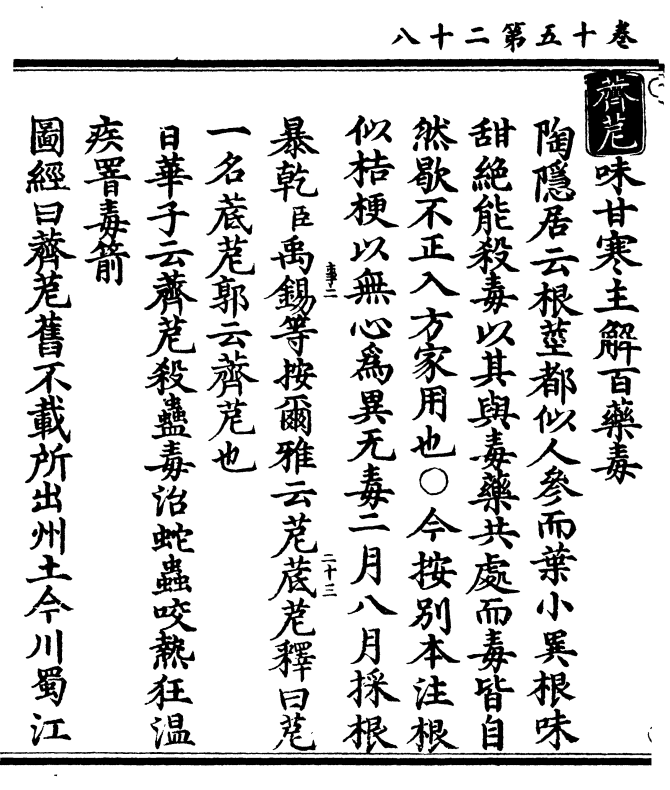 卷十五第二十八
薺苨味甘寒主解百藥毒
陶隱居云根莖都似人參而葉小異根味
甜絶能殺毒以其與毒藥共處而毒皆自
然歇不正入方家用也○今按別本注根
似桔梗以無心爲異无毒二月八月採根
暴乾臣禹錫等按爾雅云苨菧苨釋曰苨
一名菧苨郭云薺苨也
日華子云薺苨殺蠱毒治蛇蟲咬熱狂温
疾署毒箭
圖經曰薺苨舊不載所出州土今川蜀江
二十三